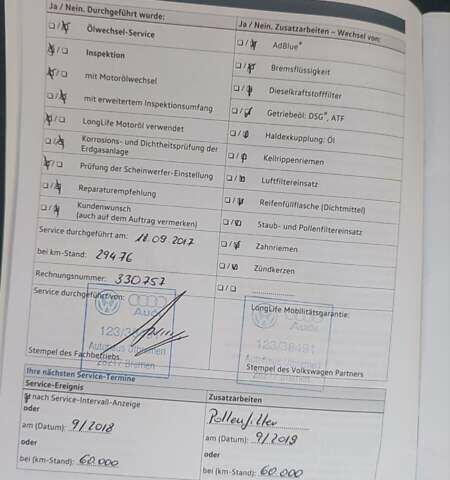 Ja / Nein. Durchgeführt wurde:
Ölwechsel-Service
Inspektion
mit Motorölwechsel
mit erweitertem Inspektionsumfang
LongLife Motoröl verwendet
Korrosions- und Dichtheitsprüfung der
Erdgasanlage
Prüfung der Scheinwerfer-Einstellung
Reparaturempfehlung
Kundenwunsch
(auch auf dem Auftrag vermerken)
Service durchgeführt am: 18.09.2017
bei km-Stand: 29476
Rechnungsnummer: 330757
Service durchgeführt von:
Audi
123/38491
Autohaus
28217 Bremen
Stempel des Fachbetriebs
Ja / Nein. Zusatzarbeiten – Wechsel von:
AdBlue®
Bremsflüssigkeit
Dieselkraftstofffilter
Getriebeöl: DSG®, ATF
Haldexkupplung: Öl
Keilrippenriemen
Luftfiltereinsatz
Reifenfüllflasche (Dichtmittel)
Staub- und Pollenfiltereinsatz
Zahnriemen
Zündkerzen
LongLife Mobilitätsgarantie:
Audi
123/38491
Autohaus
Bremen
Stempel des Volkswagen Partners
Ihre nächsten Service-Termine
Service-Ereignis
nach Service-Intervall-Anzeige
oder
am (Datum): 9/2018
oder
bei (km-Stand): 60.000
Zusatzarbeiten
Pollenfilter
oder
am (Datum): 9/2019
oder
bei (km-Stand): 60.000